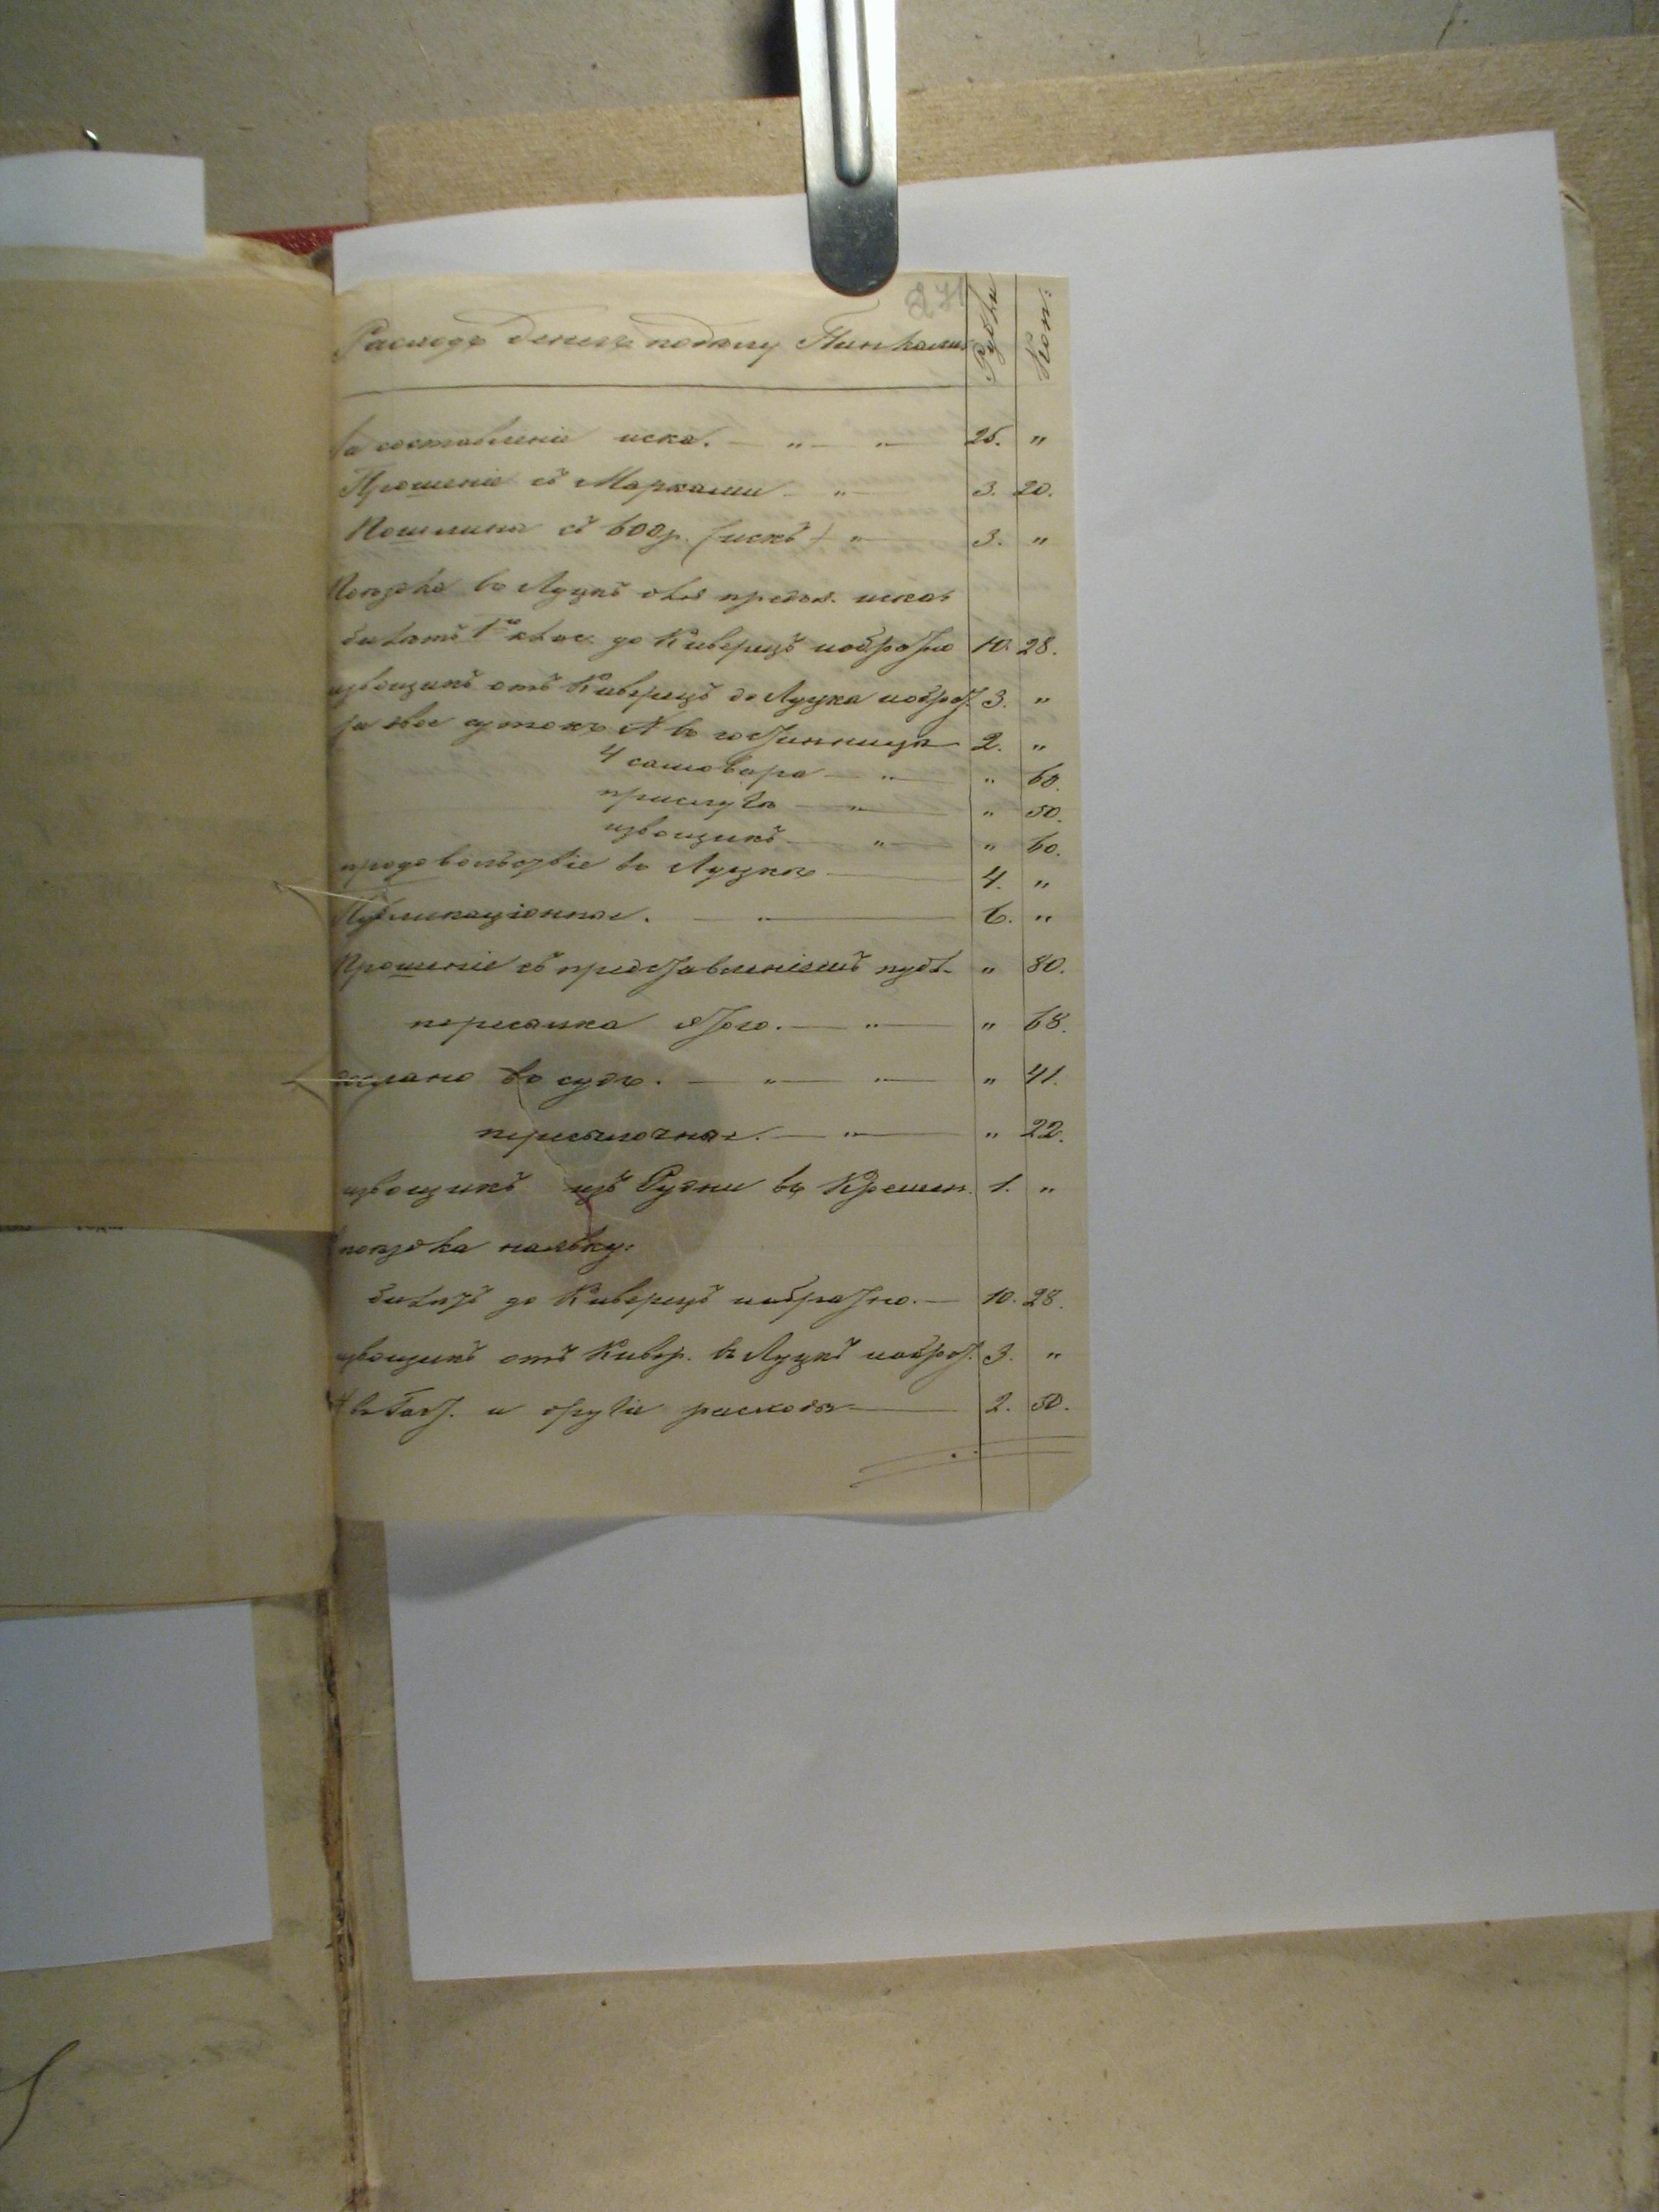 271
Расходъ денегъ по делу Рубли Коп:
За составленіе иска. — „ — „ — 25. „
Прошеніе съ Марками — „ — 3. 20.
Пошлина съ 600 р. (искъ) „ — 3. „
Поездка въ Луцкъ для предъя. иска:
билетъ 1го клас. до Киверецъ и обратно 10. 28.
извощикъ отъ Киверецъ до Луцка и обрат. 3. „
за двое сутокъ № въ гостинницѣ 2. „
4 самовара — „ — „ 60.
прислугѣ — „ — „ 50.
извощикъ — „ — „ 60.
продовольствіе въ Луцкѣ — 4. „
Публикаціонные. — „ — 6. „
Прошеніе съ представленіемъ публ. „ 80.
пересылка этого. — „ — „ 68.
въ судъ. — „ — „ — „ 41.
пересылочные. — „ — „ 22.
извощикъ изъ Рудни въ Кремен. 1. „
поездка на явку:
билетъ до Киверецъ и обратно. — 10. 28.
извощикъ отъ Кивер. въ Луцкъ и обрат. 3. „
№ въ Гост. и другіе расходы — 2. 50.